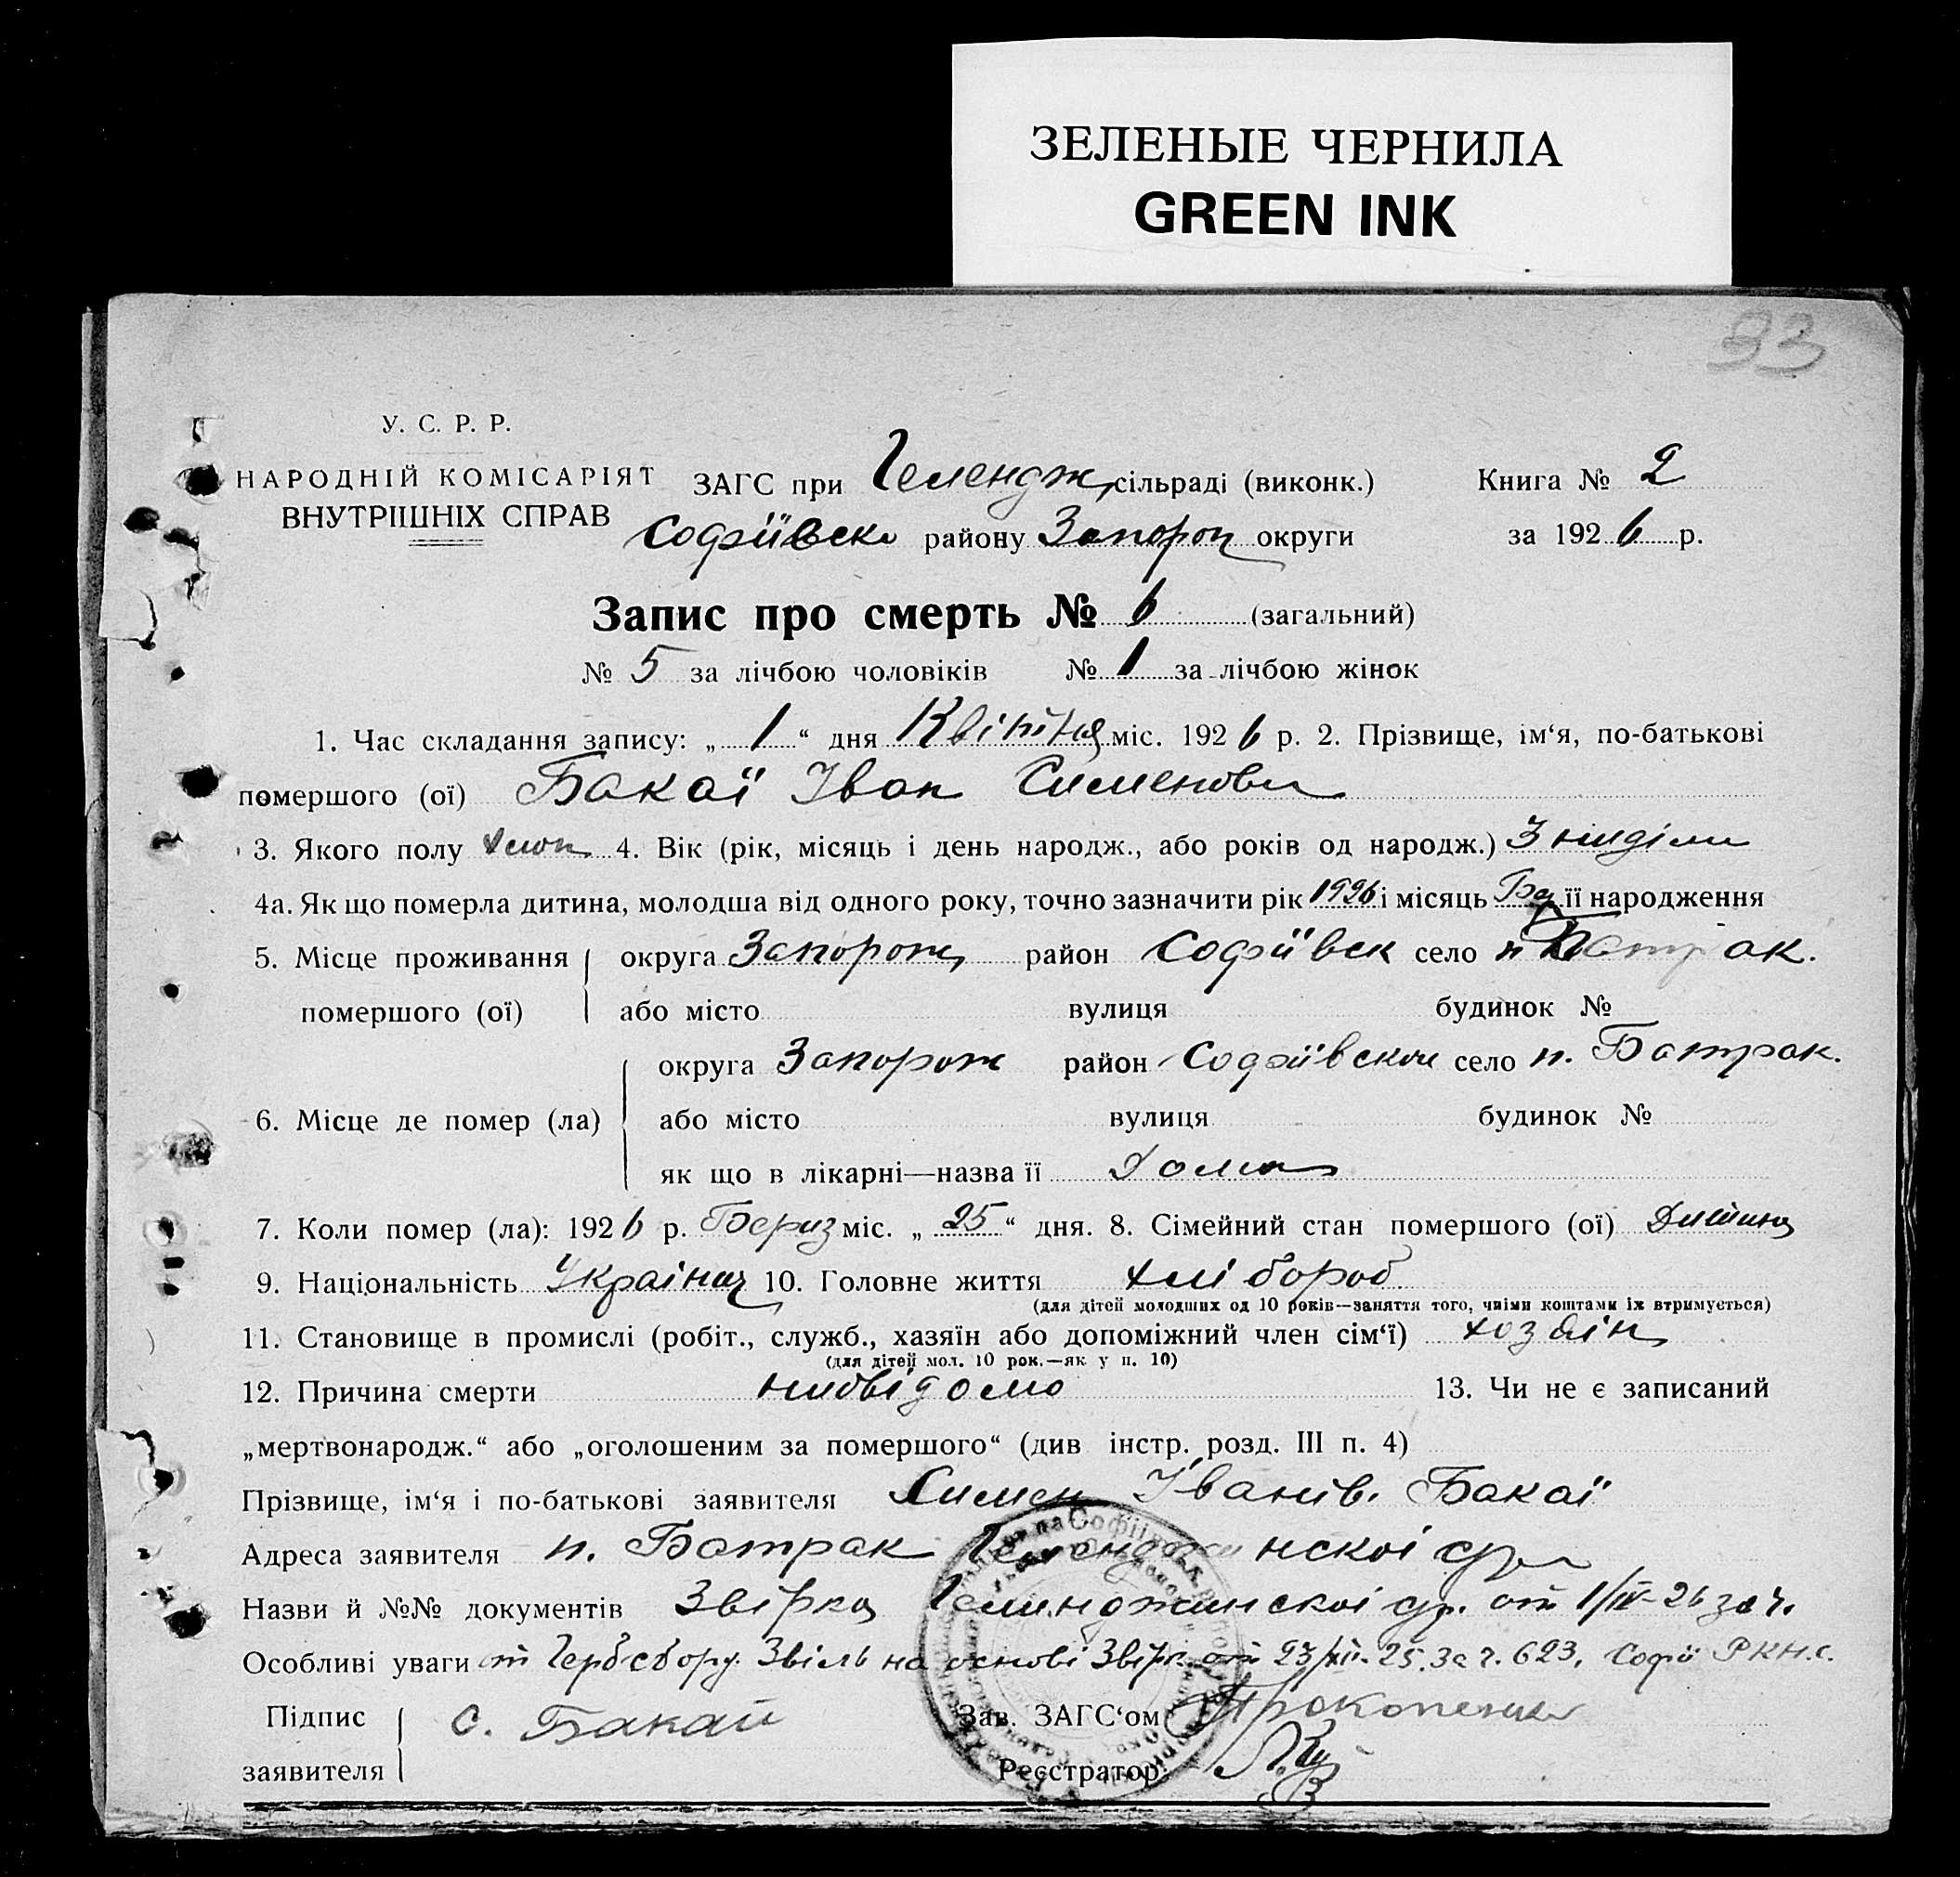 ЗЕЛЕНЫЕ ЧЕРНИЛА
GREEN INK
33
У. С. Р. Р.
НАРОДНІЙ КОМІСАРІЯТ
ВНУТРІШНІХ СПРАВ
ЗАГС при Гелендж, сільраді (виконк.) Книга № 2
Софіївско району Запорож округи за 1926 р.
Запис про смерть № 6 (загальний)
№ 5 за лічбою чоловіків № 1 за лічбою жінок
1. Час складання запису: „ 1 “ дня Квітня міс. 1926 р. 2. Прізвище, ім‘я, по-батькові
помершого (ої) Бакаї Іван Сименови
3. Якого полу 4. Вік (рік, місяць і день народж., або років од народж.) 3 ниділи
4а. Як що померла дитина, молодша від одного року, точно зазначити рік 1926 і місяць її народження
5. Місце проживання округа Запорож район Софіївск село п Батрак.
помершого (ої) або місто вулиця будинок №
округа Запорож район Софіївском село п. Батрак.
6. Місце де помер (ла) або місто вулиця будинок №
як що в лікарні—назва її Дома
7. Коли помер (ла): 1926 р. Бериз міс. „ 25 “ дня. 8. Сімейний стан помершого (ої) Дитина
9. Національність Україна 10. Головне життя хлібороб
(для дітей молодших од 10 років—заняття того, чиїми коштами їх втримується)
11. Становище в промислі (робіт., служб., хазяїн або допоміжний член сім‘ї) хозяін
(для дітей мол. 10 рок.—як у п. 10)
12. Причина смерти нивідомо 13. Чи не є записаний
„мертвонародж.“ або „оголошеним за помершого“ (див інстр. розд. III п. 4)
Прізвище, ім‘я і по-батькові заявителя Симен Іванів. Бакаї
Адреса заявителя п. Батрак Геленджинскої с/р
Назви й №№ документів Звірка Гелинджинскої с/р. от 1/IV-26 за ч.
Особливі уваги от Гербсбору Звіль на основі Звірк от 23/XII-25. за ч. 623, Софії РКНС.
Підпис С. Бакай Зав. ЗАГС‘ом Прокопенко
заявителя Реєстратор